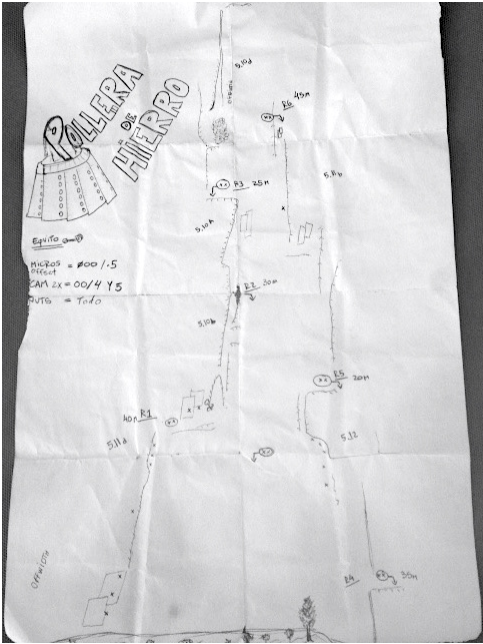 POLLERA
DE
HIERRO
EQUIPO
MICROS = #00/.5
offset
CAM 2X = 00/4 Y 5
NUTS = Todo
5,10d
OFFWIDTH
R6 45m
5,11b
R3 25m
5,10b
R2 30m
5,10b
R5 20m
40m R1
5,11d
5,12
OFFWIDTH
R4 35m